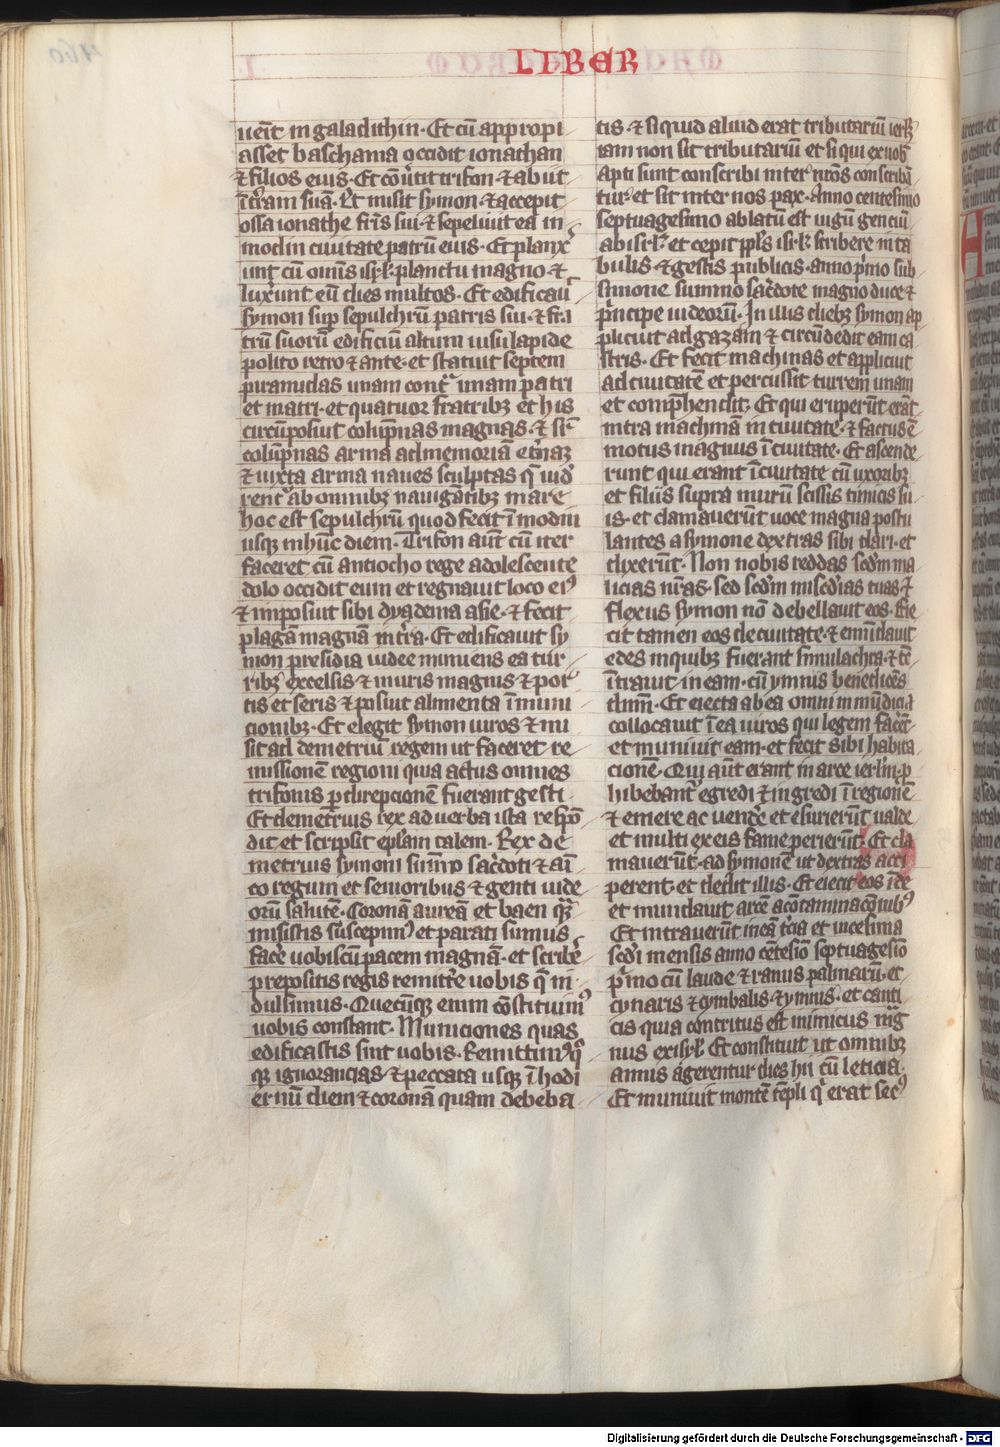 LIBER
uēit in galadithin. Et cū appropi
asset baschama occidit ionathan
⁊ filios eius. Et cōu̓tit trifon ⁊ abiit
ī t̓ram suā. Et misit symon ⁊ accepit
ossa ionathe fr̄is sui ⁊ sepeliuit ea in
modin ciuitate patrū eius. Et planx̓
unt cū om̄is isr̄l planctu magno ⁊
lux̓unt eū dies multos. Et edificau̓
symon sup̄ sepulchrū patris sui ⁊ fra
trū suorū edificiū altum uisu lapide
polito retro ⁊ ante. et statuit septem
piramidas unam contᷓ unam patri
et matri. et quatuor fratribꝫ et his
circūposuit colūpnas magnas. ⁊ suꝑ
colūpnas arma ad memoriā et̓naꝫ
⁊ iuxta arma naues sculptas q̄ uid̓
rent̓ ab omnibꝫ nauigātibꝫ mare
hoc est sepulchrū quod fecit ī modin
usqꝫ in hūc diem. Trifon aūt cū iter
faceret cū antiocho rege adolescente
dolo occidit eum et regnauit loco eiꝰ
⁊ imposuit sibi dyadema asie. ⁊ fecit
plagā magnā in t̓ra. Et edificauit sy
mon presidia iudee muniens ea tur
ribꝫ excelsis ⁊ muris magnis ⁊ por
tis et seris ⁊ posuit alimenta ī muni
cionibꝫ. Et elegit symon uiros ⁊ mi
sit ad demetriū regem ut faceret re
missionē regioni quia actus omnes
trifonis ꝑ direpcionē fuerant gesti.
Et demetrius rex ad uerba ista respō
dit et scripsit eplam talem. Rex de
metrius symoni sūmo sac̓doti ⁊ ami
co regum et senioribus ⁊ genti iude
orū salutē. Coronā aureā et baen quā
misistis suscepimꝰ et parati sumus
fac̓e uobiscū pacem magnā. et scribe̓
prepositis regis remitt̓e uobis q̄ in
dulsimus. Quecūqꝫ enim cōstituimꝰ
uobis constant. Municiones quas
edificastis sint uobis. Remittimꝰ qᷓ
qꝫ ignorancias ⁊ peccata usqꝫ ī hodi
ernū diem ⁊ coronā quam debeba
tis. ⁊ si quid aliud erat tributariū ierl̄m
iam non sit tributariū et si qui ex uob̄
apti sunt conscribi inter nr̄os conscribā
tur et sit inter nos pax. Anno centesimo
septuagesimo ablatū est iugū genciū
ab isr̄l. et cepit ppl̄s isr̄l scribere in ta
bulis ⁊ gestis publicis. anno p̓mo sub
simone summo sac̓dote magno duce ⁊
p̓ncipe iudeorū. In illis diebꝫ symon ap
plicuit ad gazam ⁊ circūdedit eam ca
stris. Et fecit machinas et applicuit
ad ciuitatē et percussit turrem unam
et comp̄hendit. Et qui eruperūt erāt
intra machinā in ciuitate. ⁊ factus ē
motus magnus ī ciuitate. Et ascende
runt qui erant ī ciuitate cū uxoribꝫ
et filiis supra murū scissis tunicis su
is. et clamauerūt uoce magna postu
lantes a symone dextras sibi dari. et
dixerūt. Non nobis reddas scd̄m ma
licias nr̄as. sed scd̄m misc̄dias tuas. ⁊
flexus symon nō debellauit eos. Eie
cit tamen eos de ciuitate. ⁊ emūdauit
edes in quibꝫ fuerant simulachra. ⁊ tc̄
ītrauit in eam. cū ymnis benedicēs
dn̄m. Et eiecta ab ea omni inmūdicia
collocauit ī ea uiros qui legem fac̓ēt
et muniuit eam. et fecit sibi habita
cionē. Qui aūt erant in arce ierl̄m. ꝓ
hibebant̓ egredi ⁊ ingredi ī regionē
⁊ emere ac uende̓ et esurierūt ualde
et multi ex eis fame perierūt. Et cla
mauerūt. ad symonē ut dextras acci
perent. et dedit illis. Et eiecit eos īde
et mundauit arcē a cōtaminacōnibꝰ
Et intrauerūt in eā t̓cia et uicesima
scd̄i mensis anno cētesīo septuagesīo
p̓mo cū laude ⁊ ramis palmarū. et
cynaris ⁊ cymbalis ⁊ ymnis. et canti
cis quia contritus est inimicus mag
nus ex isr̄l. Et constituit ut omnibꝫ
annis agerentur dies hii cū leticia.
Et muniuit montē tēpli qͥ erat secꝰ
Digitalisierung gefördert durch die Deutsche Forschungsgemeinschaft - DFG